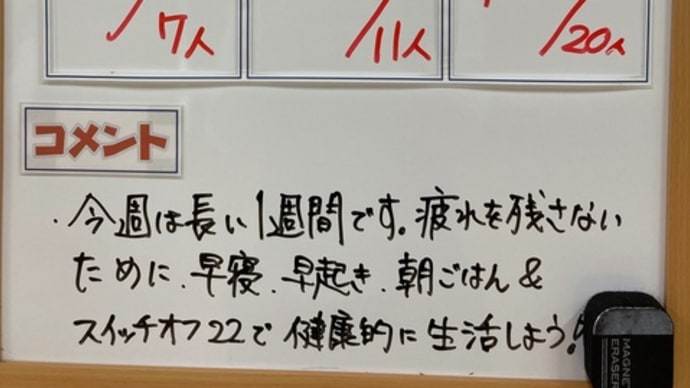 /7人 /11人 /20人
コメント
・今週は長い1週間です。疲れを残さない
ために、早寝、早起き、朝ごはん&
スイッチオフ22で健康的に生活しよう!
MAGNE
ERASER